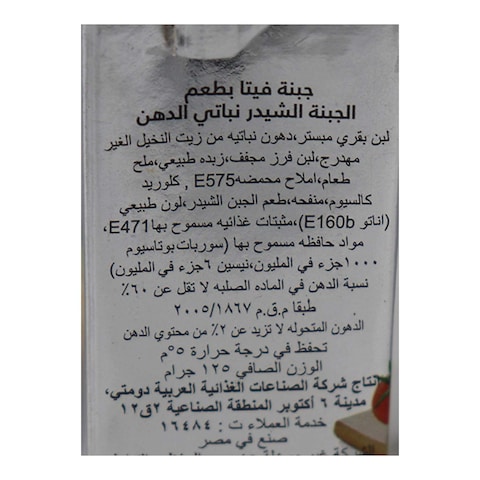 جبنة فيتا بطعم
الجبنة الشيدر نباتي الدهن
لبن بقري مبستر،دهون نباتيه من زيت النخيل الغير
مهدرج،لبن فرز مجفف،زبده طبيعي،ملح
طعام،املاح محمضهE575 , كلوريد
كالسيوم،منفحه،طعم الجبن الشيدر،لون طبيعي
(اناتو E160b)،مثبتات غذائيه مسموح بهاE471،
مواد حافظه مسموح بها (سوربات بوتاسيوم
١٠٠٠جزء في المليون،نيسين ٦جزء في المليون)
نسبة الدهن في الماده الصلبه لا تقل عن ٦٠٪
طبقا م.ق.م ٢٠٠٥/١٨٦٧
الدهون المتحوله لا تزيد عن ٢٪ من محتوي الدهن
تحفظ في درجة حرارة ٥°م
الوزن الصافي ١٢٥ جرام
إنتاج شركة الصناعات الغذائية العربية دومتي،
مدينة ٦ أكتوبر المنطقة الصناعية ٢ق١٢
خدمة العملاء ت : ١٦٤٨٤
صنع في مصر